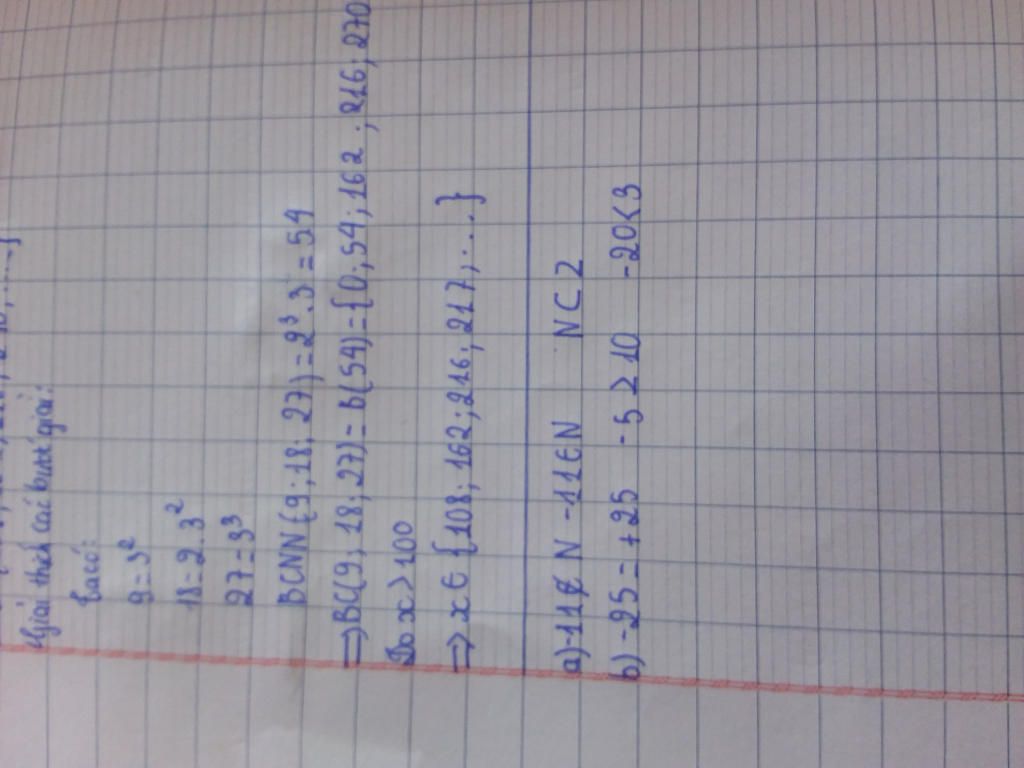 Giải thích các bước giải:
Ta có:
9=3²
18=2.3²
27=3³
BCNN(9;18;27)=2³.3=54
=>BC(9;18;27)=B(54)={0;54;162;216;270
Do x>100
=>x∈{108;162;216;217;...}
a)-11∉N -11∈N N⊂Z
b)-25=+25 -5>10 -20<3